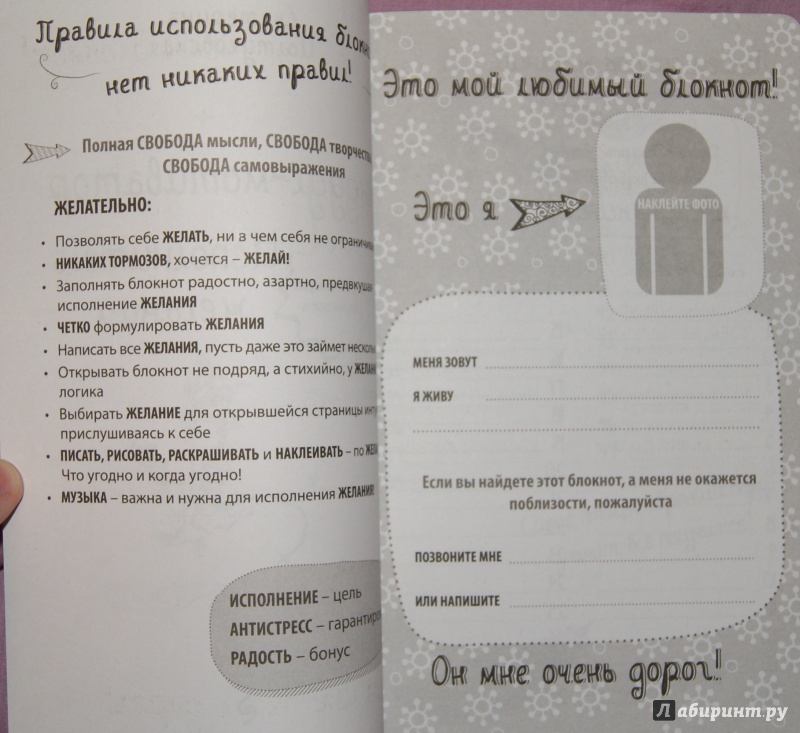 Правила использования
нет никаких правил!
Полная СВОБОДА мысли, СВОБОДА
СВОБОДА самовыражения
ЖЕЛАТЕЛЬНО:
• Позволять себе ЖЕЛАТЬ, ни в чем себя не
• НИКАКИХ ТОРМОЗОВ, хочется – ЖЕЛАЙ!
• Заполнять блокнот радостно, азартно,
исполнение ЖЕЛАНИЯ
• ЧЕТКО формулировать ЖЕЛАНИЯ
• Написать все ЖЕЛАНИЯ, пусть даже это займет
• Открывать блокнот не подряд, а стихийно, у
логика
• Выбирать ЖЕЛАНИЕ для открывшейся страницы
прислушиваясь к себе
• ПИСАТЬ, РИСОВАТЬ, РАСКРАШИВАТЬ и НАКЛЕИВАТЬ – по
Что угодно и когда угодно!
• МУЗЫКА – важна и нужна для исполнения ЖЕЛАНИЯ!
ИСПОЛНЕНИЕ – цель
АНТИСТРЕСС –
РАДОСТЬ – бонус
Это мой любимый блокнот!
Это я
НАКЛЕЙТЕ ФОТО
МЕНЯ ЗОВУТ
Я ЖИВУ
Если вы найдете этот блокнот, а меня не окажется
поблизости, пожалуйста
ПОЗВОНИТЕ МНЕ
ИЛИ НАПИШИТЕ
Он мне очень дорог!
Лабиринт.ру